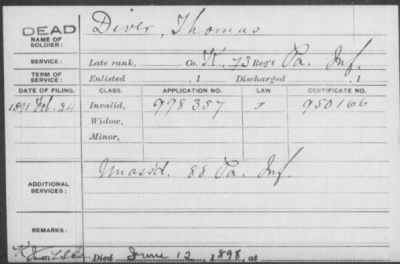 DEAD Diver, Thomas
NAME OF SOLDIER:
SERVICE: Late rank, Co. K, 73 Reg't Pa. Inf.
TERM OF SERVICE: Enlisted , 1 Discharged , 1
DATE OF FILING. CLASS. APPLICATION NO. LAW. CERTIFICATE NO.
1891 Feb. 24 Invalid, 998357 950166
Widow,
Minor,
ADDITIONAL SERVICES: Unass'd. 88 Pa. Inf.
REMARKS:
Died June 12, 1898, at